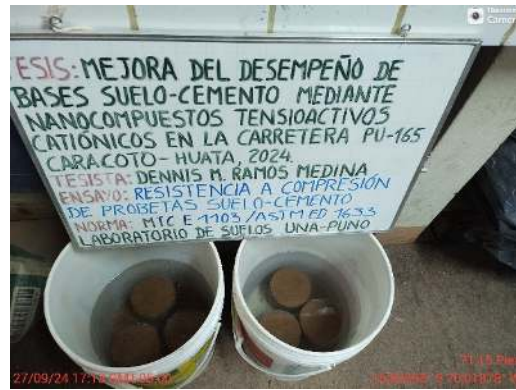 TESIS: MEJORA DEL DESEMPEÑO DE
BASES SUELO-CEMENTO MEDIANTE
NANOCOMPUESTOS TENSIOACTIVOS
CATIÓNICOS EN LA CARRETERA PU-165
CARACOTO-HUATA, 2024.
TESISTA: DENNIS M. RAMOS MEDINA
ENSAYO: RESISTENCIA A COMPRESIÓN
DE PROBETAS SUELO-CEMENTO
NORMA: MTC E 1103/ASTM ED 1633
LABORATORIO DE SUELOS UNA-PUNO
27/09/24 17: